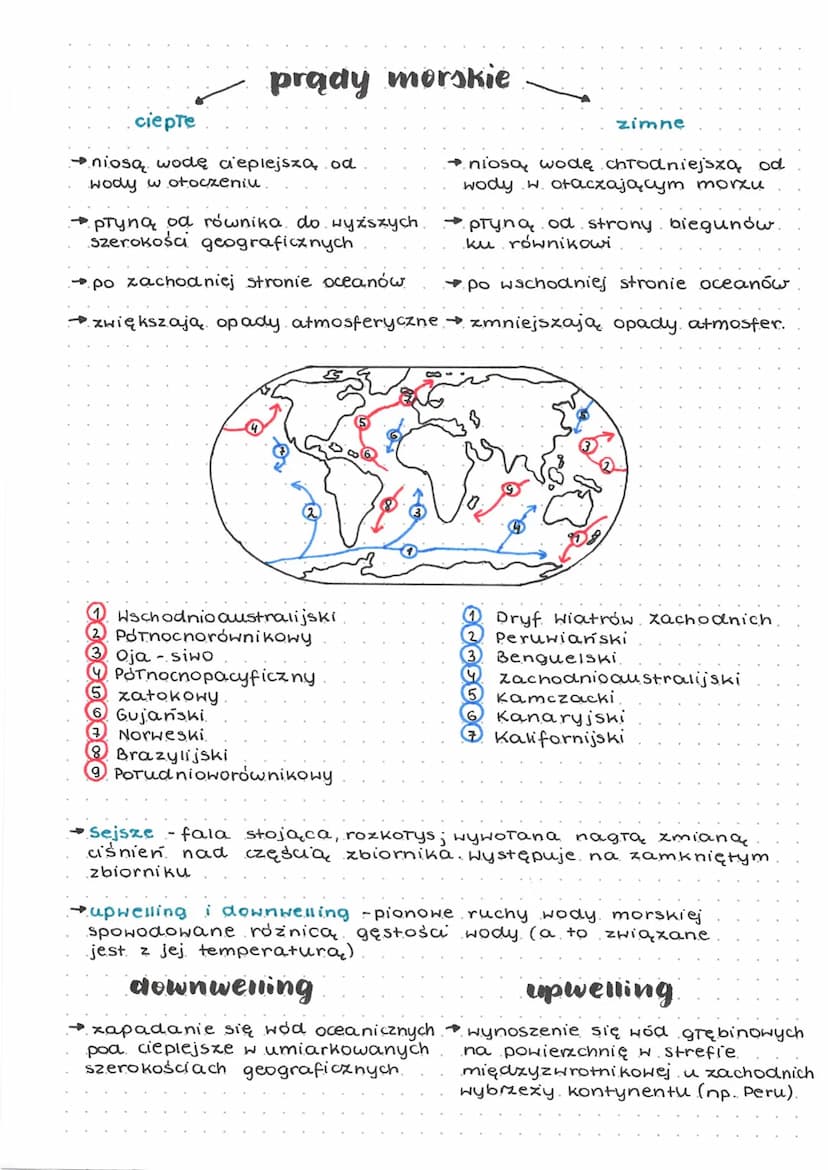 prądy morskie
ciepłe
→ niosą wodę cieplejszą od
wody w otoczeniu
→ płyną od równika do wyższych
szerokości geograficznych
→ po zachodniej stronie oceanów
→ zwiększają opady atmosferyczne
zimne
→ niosą wodę chłodniejszą od
wody w otaczającym morzu
→ płyną od strony biegunów
ku równikowi
→ po wschodniej stronie oceanów
→ zmniejszają opady atmosfer.
4
5
6
7
8
9
3
2
1
7
2
6
3
4
5
1
1 Wschodnioaustralijski
2 Północnorównikowy
3 Oja-siwo
4 Północnopacyficzny
5 zatokowy
6 Gujański
7 Norweski
8 Brazylijski
9 Południoworównikowy
1 Dryf Wiatrów zachodnich
2 Peruwiański
3 Benguelski
4 zachodnioaustralijski
5 Kamczacki
6 Kanaryjski
7 Kalifornijski
→ Sejsze - fala stojąca, rozkołys; wywołana nagłą zmianą
ciśnień nad częścią zbiornika. występuje na zamkniętym
zbiorniku
→ upwelling i downwelling - pionowe ruchy wody morskiej
spowodowane różnicą gęstości wody (a to związane
jest z jej temperaturą)
downwelling
→ zapadanie się wód oceanicznych
pod cieplejsze w umiarkowanych
szerokościach geograficznych
upwelling
→ wynoszenie się wód głębinowych
na powierzchnię w strefie
międzyzwrotnikowej u zachodnich
wybrzeży kontynentu (np. Peru)